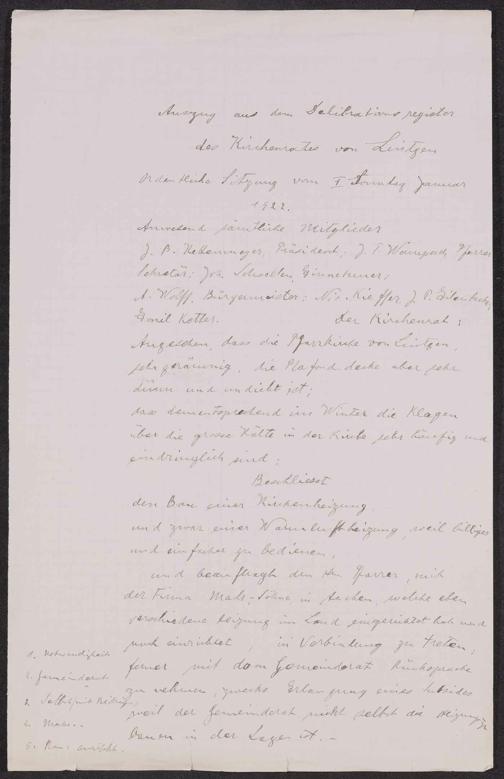 Auszug aus dem Deliberationsregister
des Kirchenrates von Lintgen
Ordentliche Sitzung vom I Sonntag Januar
1922.
Anwesend sämtliche Mitglieder
J. B. Präsident; J. P. Pfarrer
Sekretär; Jos. Schoellen, Einnehmer;
A. Wolff, Bürgermeister; Nic. Kieffer, J. P.
Emil Kotter. Der Kirchenrat:
Angesehen, dass die Pfarrkirche von Lintgen,
sehr geräumig, die Plafonddecke aber sehr
dünn und undicht ist;
dass dementsprechend im Winter die Klagen
über die grosse Kälte in der Kirche sehr häufig und
eindringlich sind:
Beschliesst
den Bau einer Kirchenheizung
und zwar einer Warmluftheizung, weil billiger
und einfacher zu bedienen,
und beauftragt den Hn Pfarrer, mit
der Firma Söhne in Aachen, welche eben
verschiedene Heizung im Land eingerichtet hat und
noch einrichtet, in Verbindung zu treten,
ferner mit dem Gemeinderat Rücksprache
zu nehmen, zwecks Erlangung eines Subsides
weil der Gemeinderat nicht selbst die Heizung zu
bauen in der Lage ist. -
1. Notwendigkeit
2. Gemeinderat
3.
4.
5.